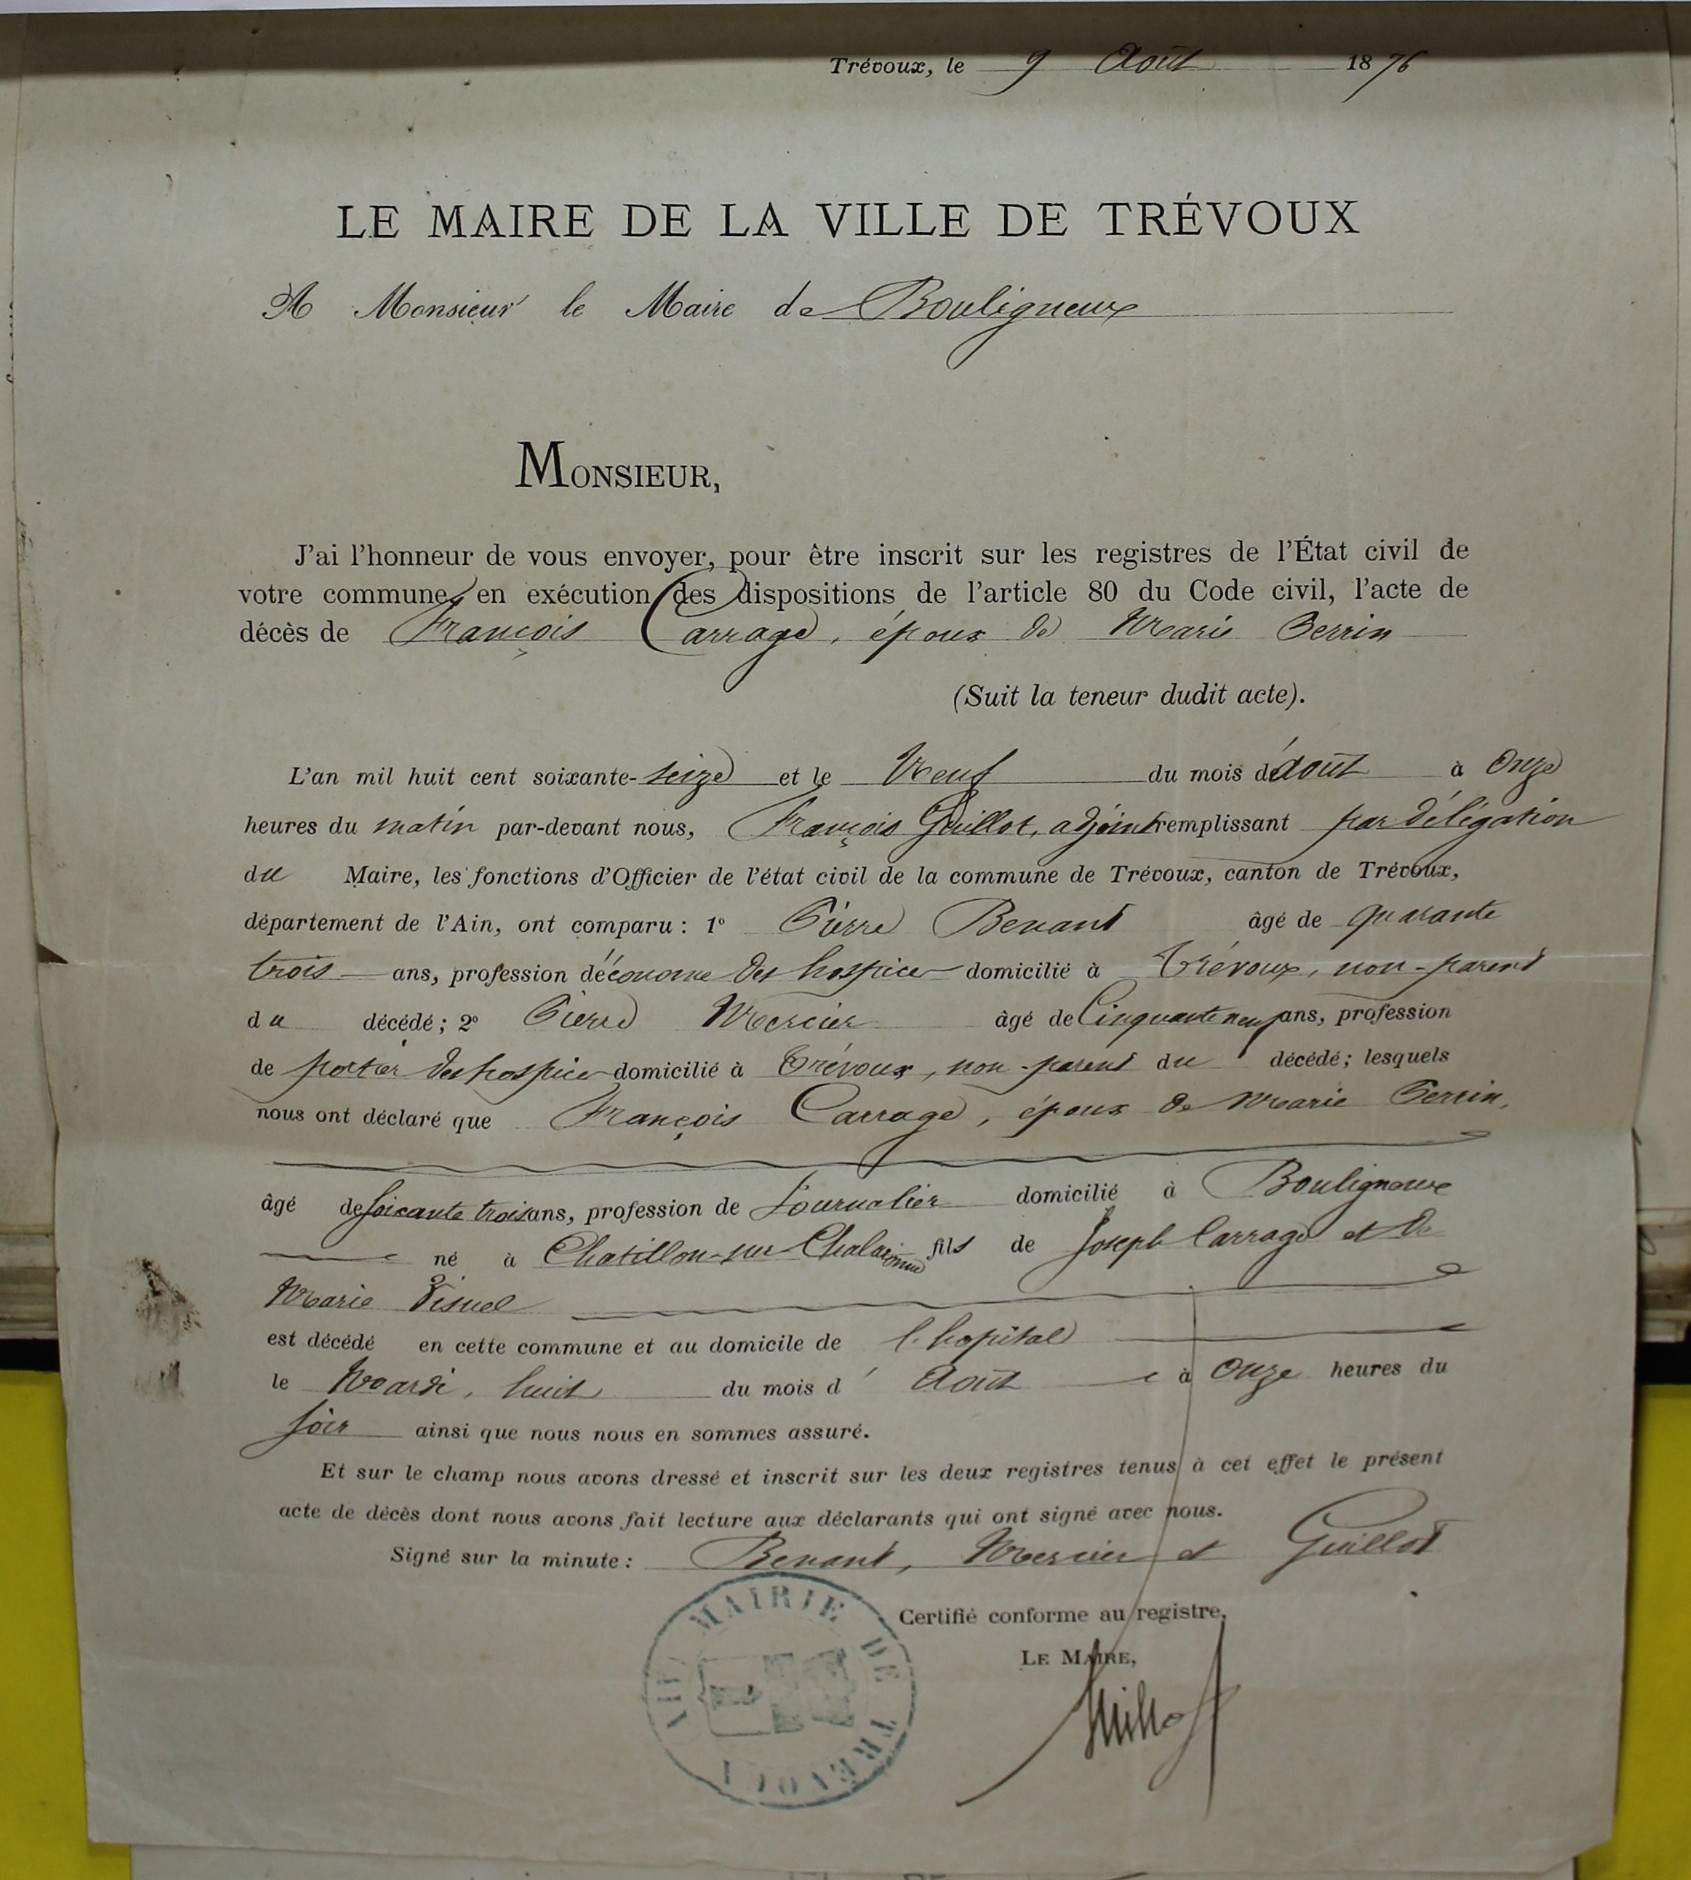 Trévoux, le 9 Août 1876
LE MAIRE DE LA VILLE DE TRÉVOUX
A Monsieur le Maire de Bouligneux
MONSIEUR,
J'ai l'honneur de vous envoyer, pour être inscrit sur les registres de l'État civil de
votre commune, en exécution des dispositions de l'article 80 du Code civil, l'acte de
décès de François Carrage, époux de Marie Perrin
(Suit la teneur dudit acte).
L'an mil huit cent soixante-seize et le Neuf du mois d'août à Onze
heures du matin par-devant nous, François Guillot, adjoint remplissant par délégation
du Maire, les fonctions d'Officier de l'état civil de la commune de Trévoux, canton de Trévoux,
département de l'Ain, ont comparu : 1º Pierre Benant âgé de quarante
trois ans, profession d'économe des hospices domicilié à Trévoux, non-parent
du décédé ; 2º Pierre Mercier âgé de Cinquante neuf ans, profession
de portier des hospices domicilié à Trévoux, non-parent du décédé ; lesquels
nous ont déclaré que François Carrage, époux de Marie Perrin,
âgé de soixante trois ans, profession de Journalier domicilié à Bouligneux
né à Chatillon-sur-Chalaronne fils de Joseph Carrage et de
Marie
est décédé en cette commune et au domicile de l'hopital
le Mardi, huit du mois d'Août à Onze heures du
soir ainsi que nous nous en sommes assuré.
Et sur le champ nous avons dressé et inscrit sur les deux registres tenus à cet effet le présent
acte de décès dont nous avons fait lecture aux déclarants qui ont signé avec nous.
Signé sur la minute : Benant, Mercier et Guillot
Certifié conforme au registre,
LE MAIRE,
MAIRIE DE TREVOUX (AIN)